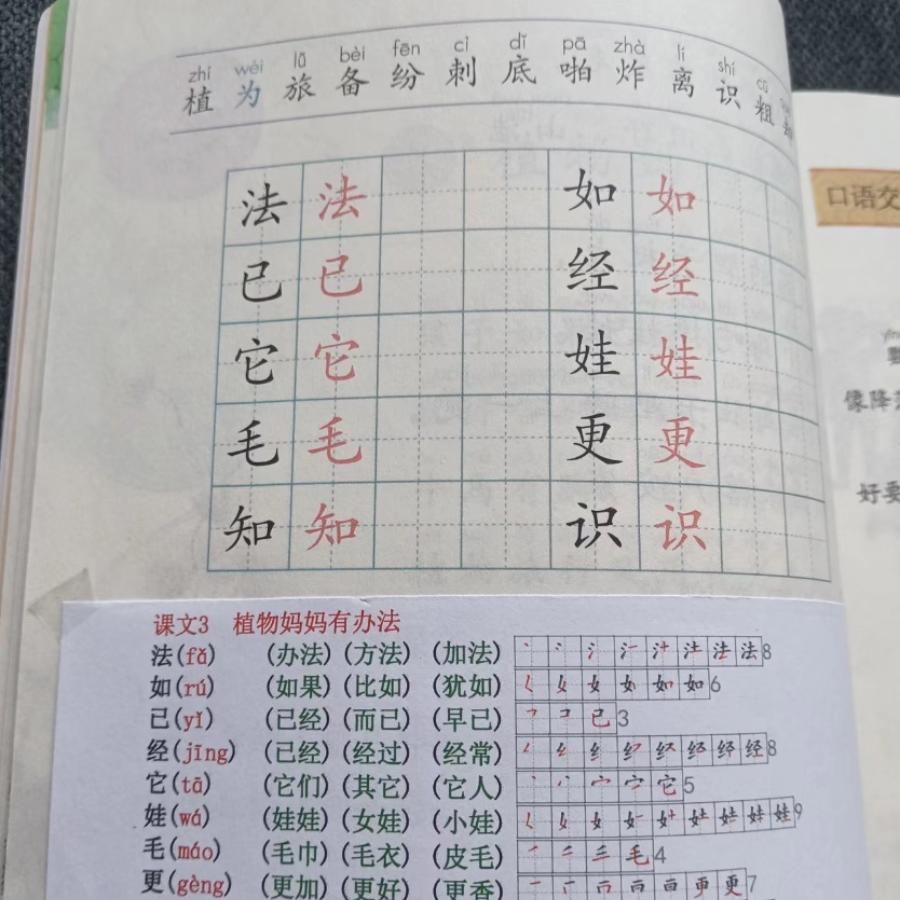 zhí wéi lǚ bèi fēn cì dǐ pā zhà lí shí cū
植 为 旅 备 纷 刺 底 啪 炸 离 识 粗
法 法 如 如
已 已 经 经
它 它 娃 娃
毛 毛 更 更
知 知 识 识
课文3 植物妈妈有办法
法(fǎ) (办法) (方法) (加法) 法8
如(rú) (如果) (比如) (犹如) 如6
已(yǐ) (已经) (而已) (早已) 已3
经(jīng) (已经) (经过) (经常) 经8
它(tā) (它们) (其它) (它人) 它5
娃(wá) (娃娃) (女娃) (小娃) 娃9
毛(máo) (毛巾) (毛衣) (皮毛) 毛4
更(gèng) (更加) (更好) (更香) 更7
口语交
像降
好委